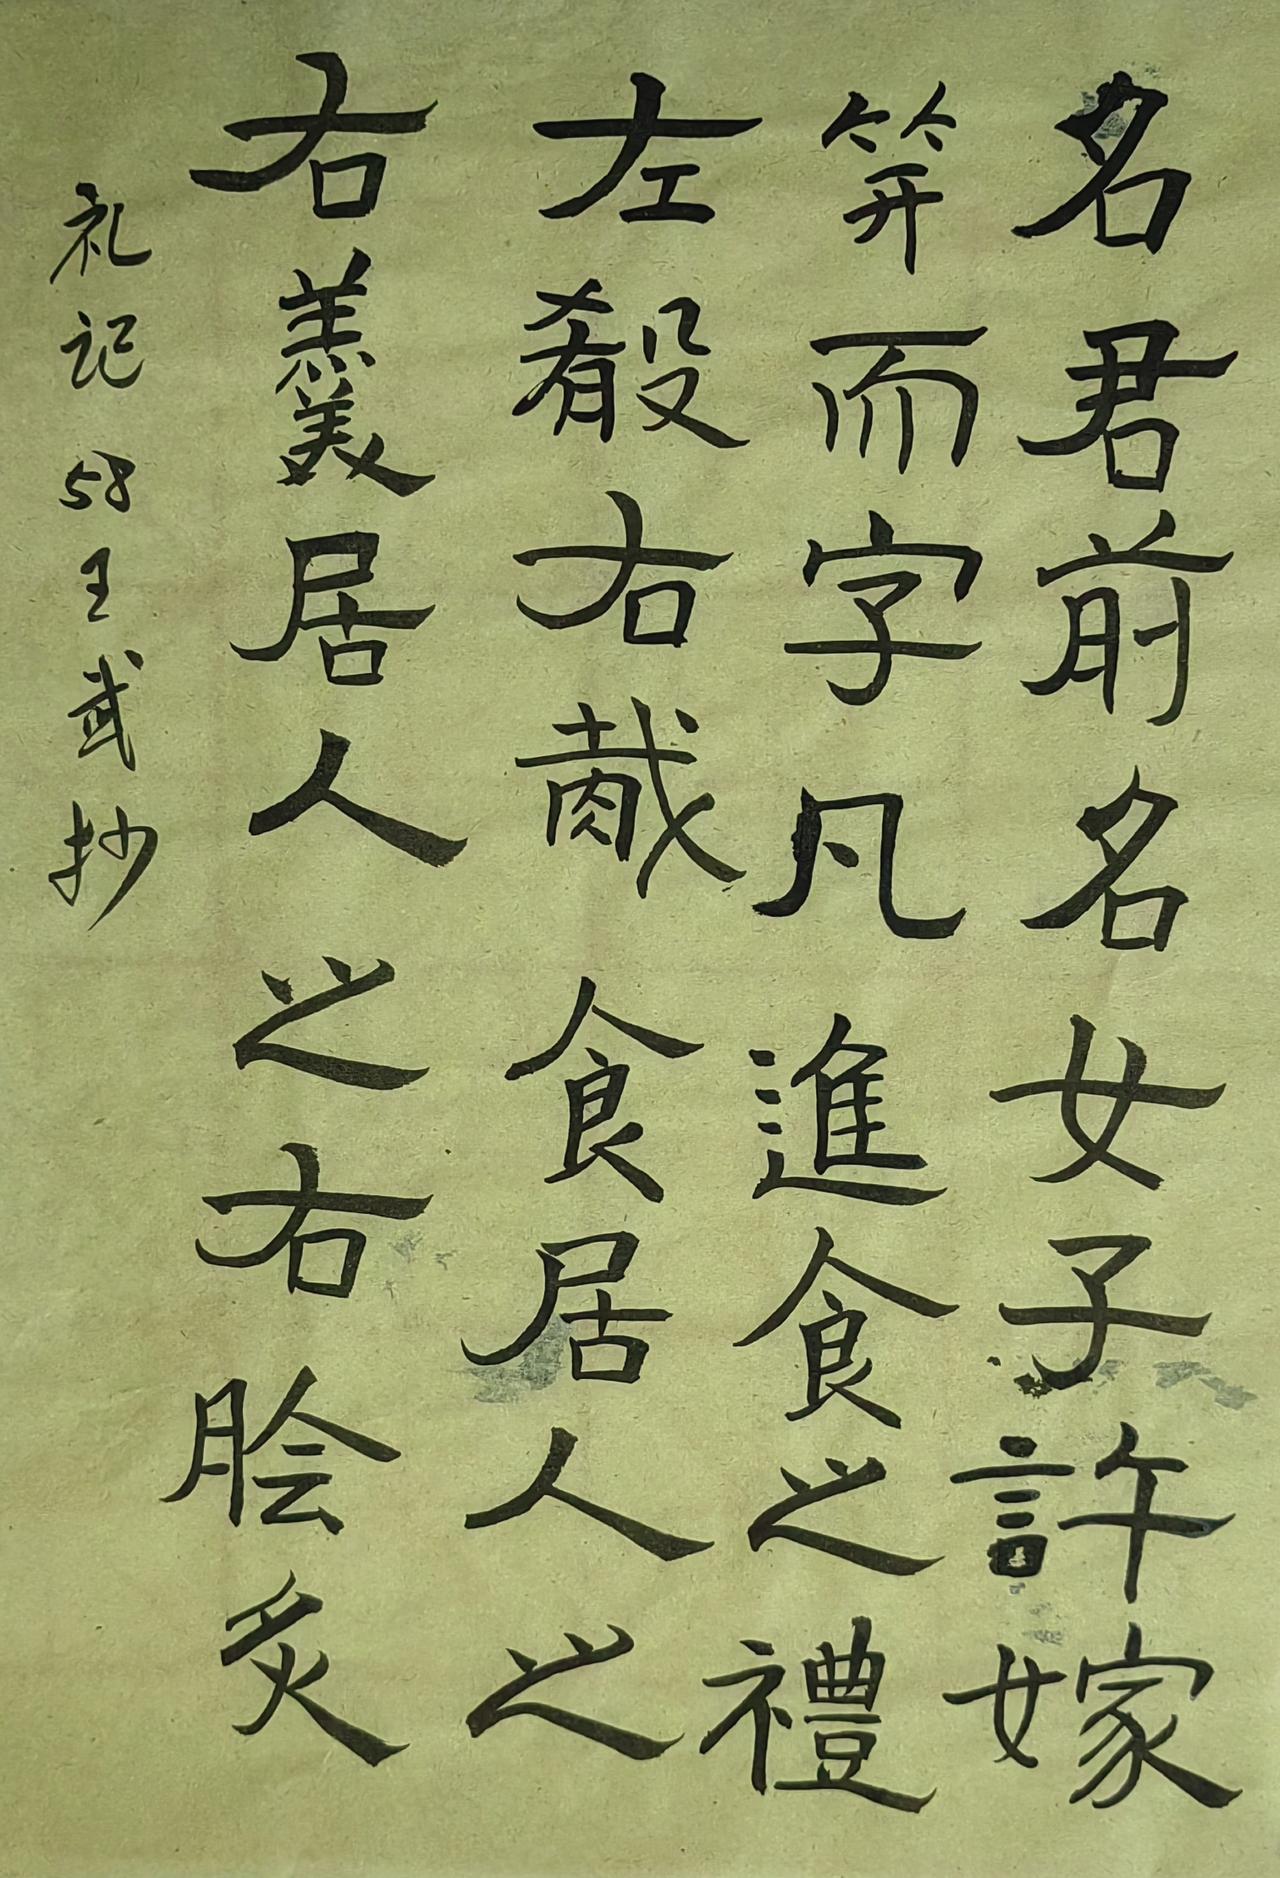 名君前名女子許嫁
笄而字凡進食之禮
左殽右胾食居人之
右羹居人之右膾炙
礼记58王武抄